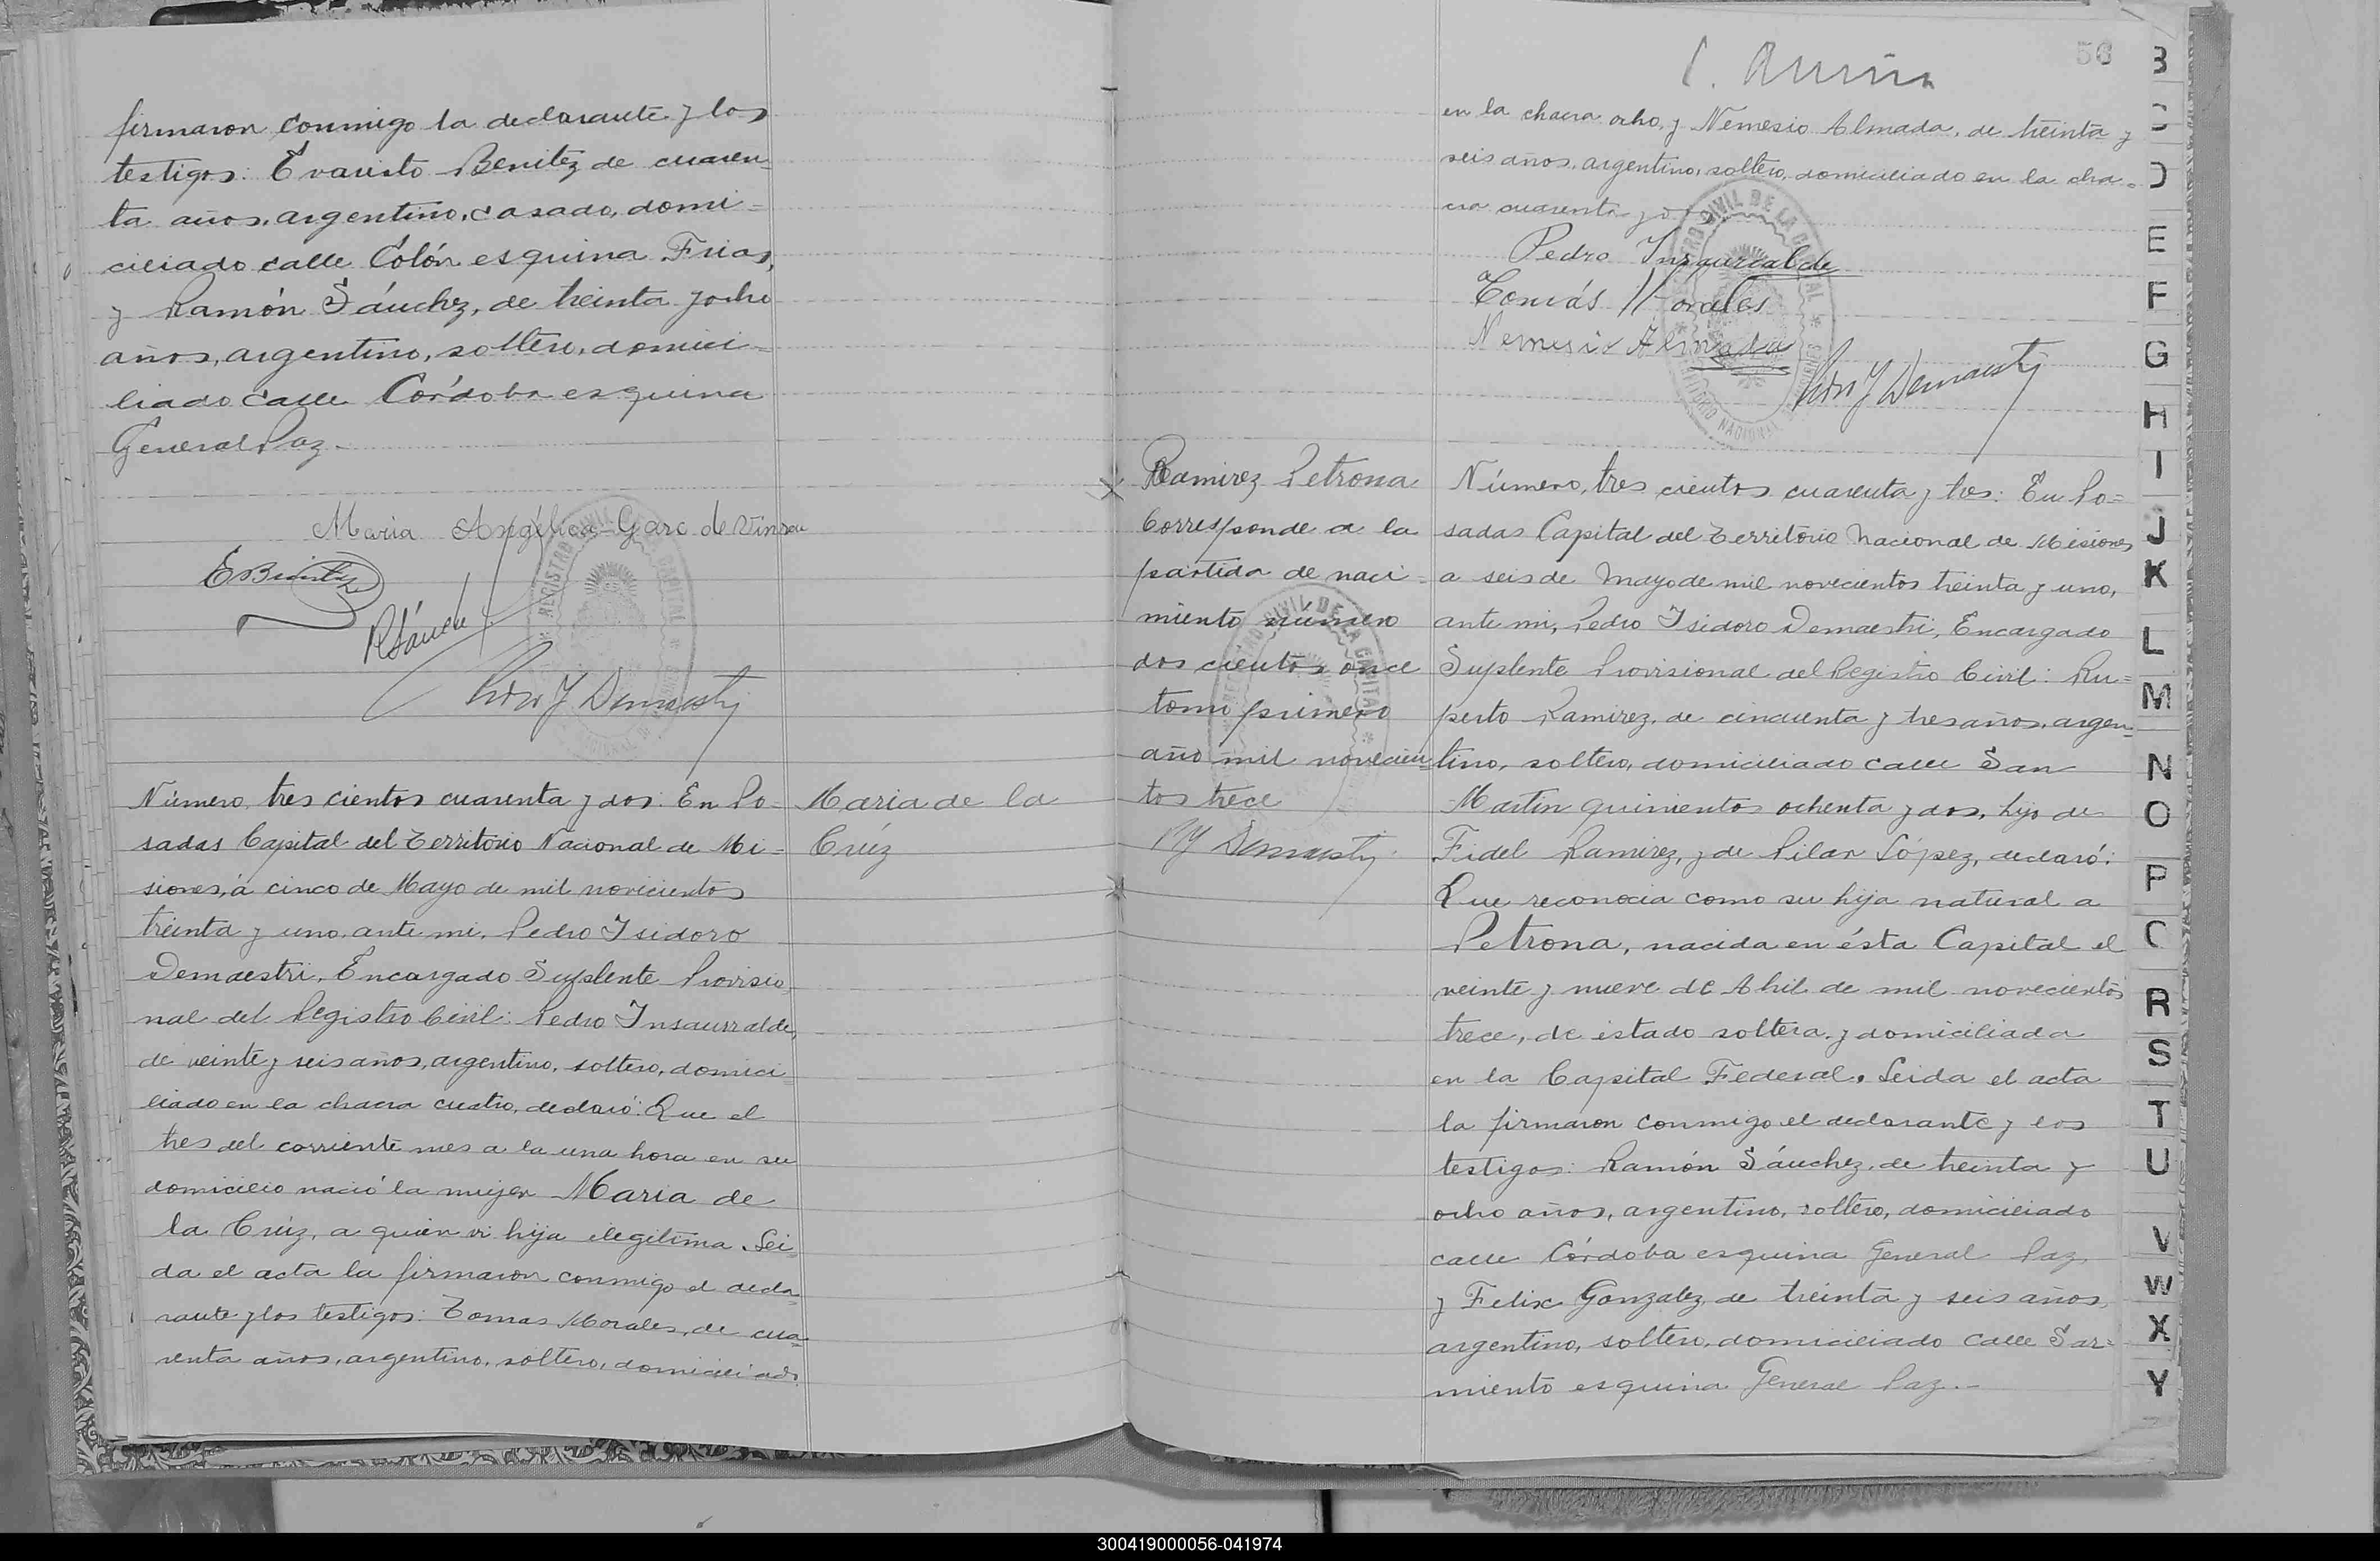 firmaron conmigo la declarante y los
testigos: Evaristo Benitez de cuaren=
ta años, argentino, casado, domi=
ciliado calle Colón esquina Frias,
y Ramón Sánchez, de treinta y ocho
años, argentino, soltero, domici=
liado calle Córdoba esquina
General Paz.-
Maria Angélica Garc de
EBenitez
RSánchez
Pedro Y Demaestri
Número, tres cientos cuarenta y dos: En Po=
sadas Capital del Territorio Nacional de Mi=
siones, á cinco de Mayo de mil novecientos
treinta y uno, ante mi, Pedro Isidoro
Demaestri, Encargado Suplente Provisio=
nal del Registro Civil: Pedro Insaurralde,
de veinte y seis años, argentino, soltero, domici=
liado en la chacra cuatro, declaró: Que el
tres del corriente mes a la una hora en su
domicilio nació la mujer Maria de
la Crúz, a quien vi hija ilegitima. Lei=
da el acta la firmaron conmigo el decla=
rante y los testigos: Tomas Morales, de cua=
renta años, argentino, soltero, domiciliado
Maria de la
Crúz
56
en la chacra ocho, y Nemesio Almada, de treinta y
seis años, argentino, soltero, domiciliado en la cha=
cra cuarenta y
Pedro Insaurralde
Tomás Morales
Nemesio Almada
Pedro Y Demaestri
Ramirez Petrona
Corresponde a la
partida de naci=
miento número
dos cientos once
tomo primero
año mil novecien=
tos trece
PY Demaestri
Número, tres cientos cuarenta y tres: En Po=
sadas Capital del Territorio Nacional de Misiones
a seis de Mayo de mil novecientos treinta y uno,
ante mi, Pedro Isidoro Demaestri, Encargado
Suplente Provisional del Registro Civil: Ru=
perto Ramirez, de cincuenta y tres años, argen=
tino, soltero, domiciliado calle San
Martin quinientos ochenta y dos, hijo de
Fidel Ramirez, y de Pilar López, declaró:
Que reconocia como su hija natural a
Petrona, nacida en ésta Capital el
veinte y nueve de Abril de mil novecientos
trece, de estado soltera y domiciliada
en la Capital Federal. Leida el acta
la firmaron conmigo el declarante y los
testigos: Ramón Sánchez, de treinta y
ocho años, argentino, soltero, domiciliado
calle Córdoba esquina General Paz,
y Felix Gonzalez, de treinta y seis años,
argentino, soltero, domiciliado calle Sar=
miento esquina General Paz.-
B
C
D
E
F
G
H
I
J
K
L
M
N
O
P
C
R
S
T
U
V
W
X
Y
300419000056-041974